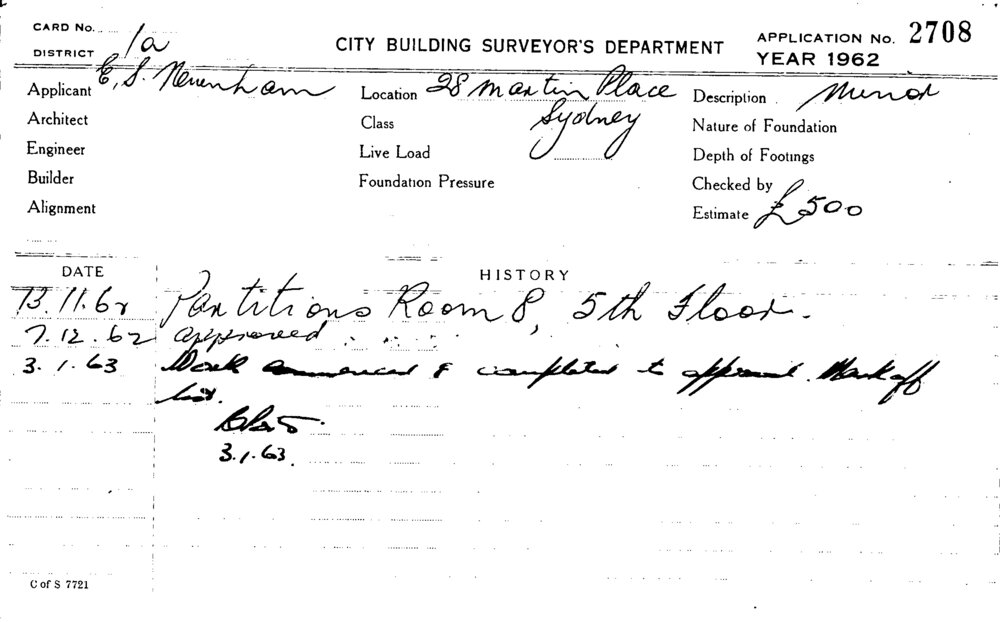 CARD No.
DISTRICT 1a
CITY BUILDING SURVEYOR'S DEPARTMENT
APPLICATION No. 2708
YEAR 1962
Applicant E. S. Nevenham
Location 28 Martin Place
Sydney
Description Minor
Architect
Class
Nature of Foundation
Engineer
Live Load
Depth of Footings
Builder
Foundation Pressure
Checked by
Alignment
Estimate £500
DATE
HISTORY
13.11.62 Partitions Room 8, 5th Floor.
7.12.62 approved
3.1.63 Work commenced & completed to approval. Mark off
list.
3.1.63.
C of S 7721